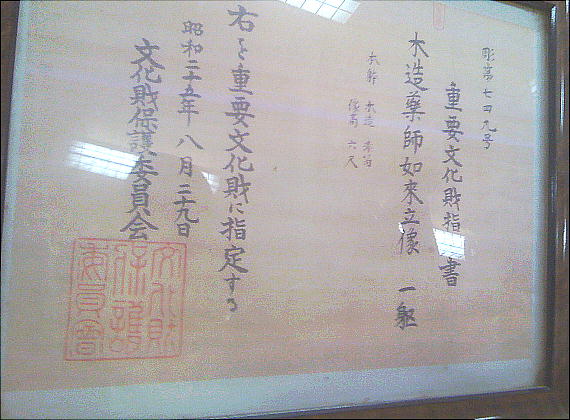 彫第七四九号
重要文化財指 書
木造薬師如来立像 一躯
木造
像高 六尺
右を重要文化財に指定する
昭和二十五年八月二十九日
文化財保護委員会
文化財
保護
委員會